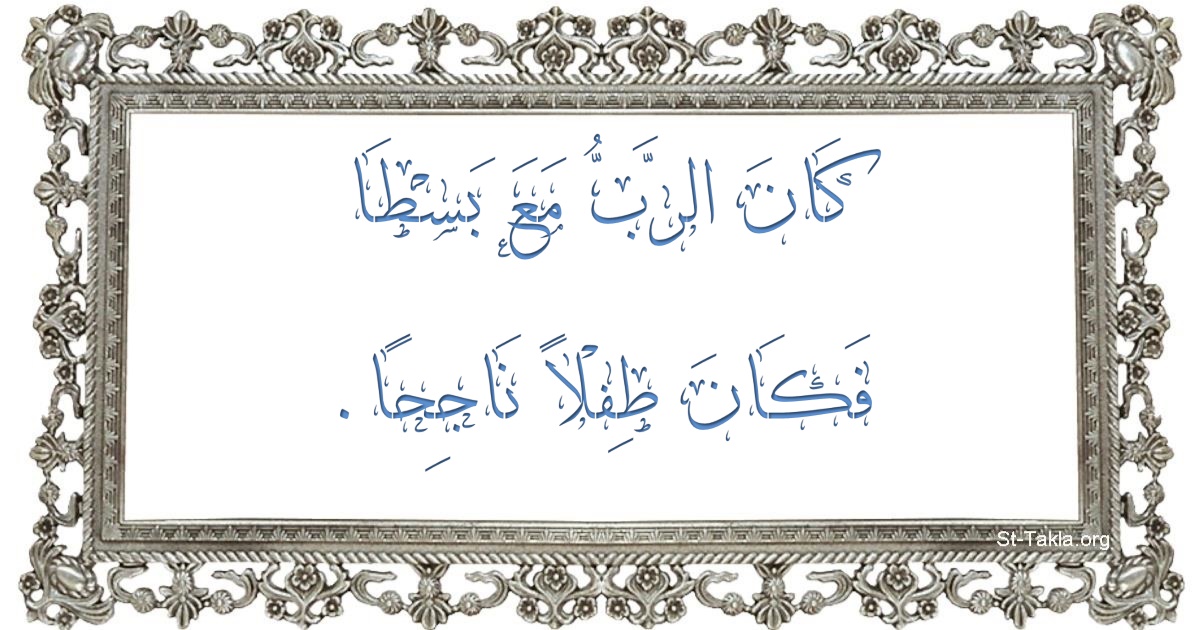 كَانَ الرَّبُّ مَعَ بَسْطَا
فَكَانَ طِفْلاً نَاجِحًا .
St-Takla.org